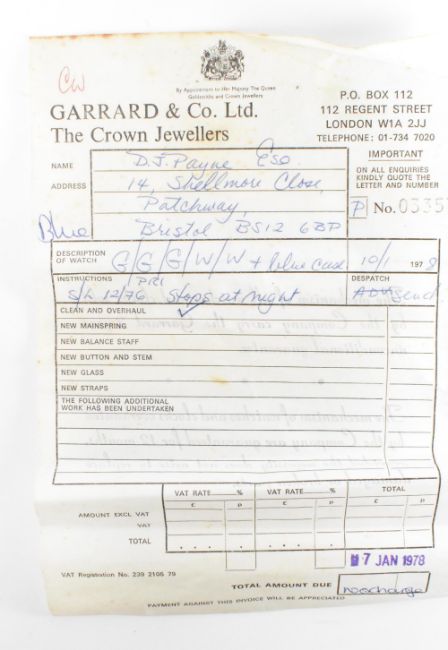 CW
By Appointment to Her Majesty The Queen
Goldsmiths and Crown Jewellers
GARRARD & Co. Ltd.
The Crown Jewellers
P.O. BOX 112
112 REGENT STREET
LONDON W1A 2JJ
TELEPHONE: 01-734 7020
IMPORTANT
ON ALL ENQUIRIES
KINDLY QUOTE THE
LETTER AND NUMBER
P No. 0335
NAME D.J. Payne Esq
ADDRESS 14, Shellmore Close,
Patchway,
Bristol BS12 6BP
Blue
DESCRIPTION OF WATCH G/G/G/W/W + blue case 10/1 1978
INSTRUCTIONS PRI DESPATCH
S/L 12/76 Stops at night ADV Send
CLEAN AND OVERHAUL ✓
NEW MAINSPRING
NEW BALANCE STAFF
NEW BUTTON AND STEM
NEW GLASS
NEW STRAPS
THE FOLLOWING ADDITIONAL
WORK HAS BEEN UNDERTAKEN
VAT RATE % VAT RATE % TOTAL
£ p £ p £ p
AMOUNT EXCL VAT
VAT
TOTAL
17 JAN 1978
VAT Registration No. 239 2106 79
TOTAL AMOUNT DUE no charge
PAYMENT AGAINST THIS INVOICE WILL BE APPRECIATED